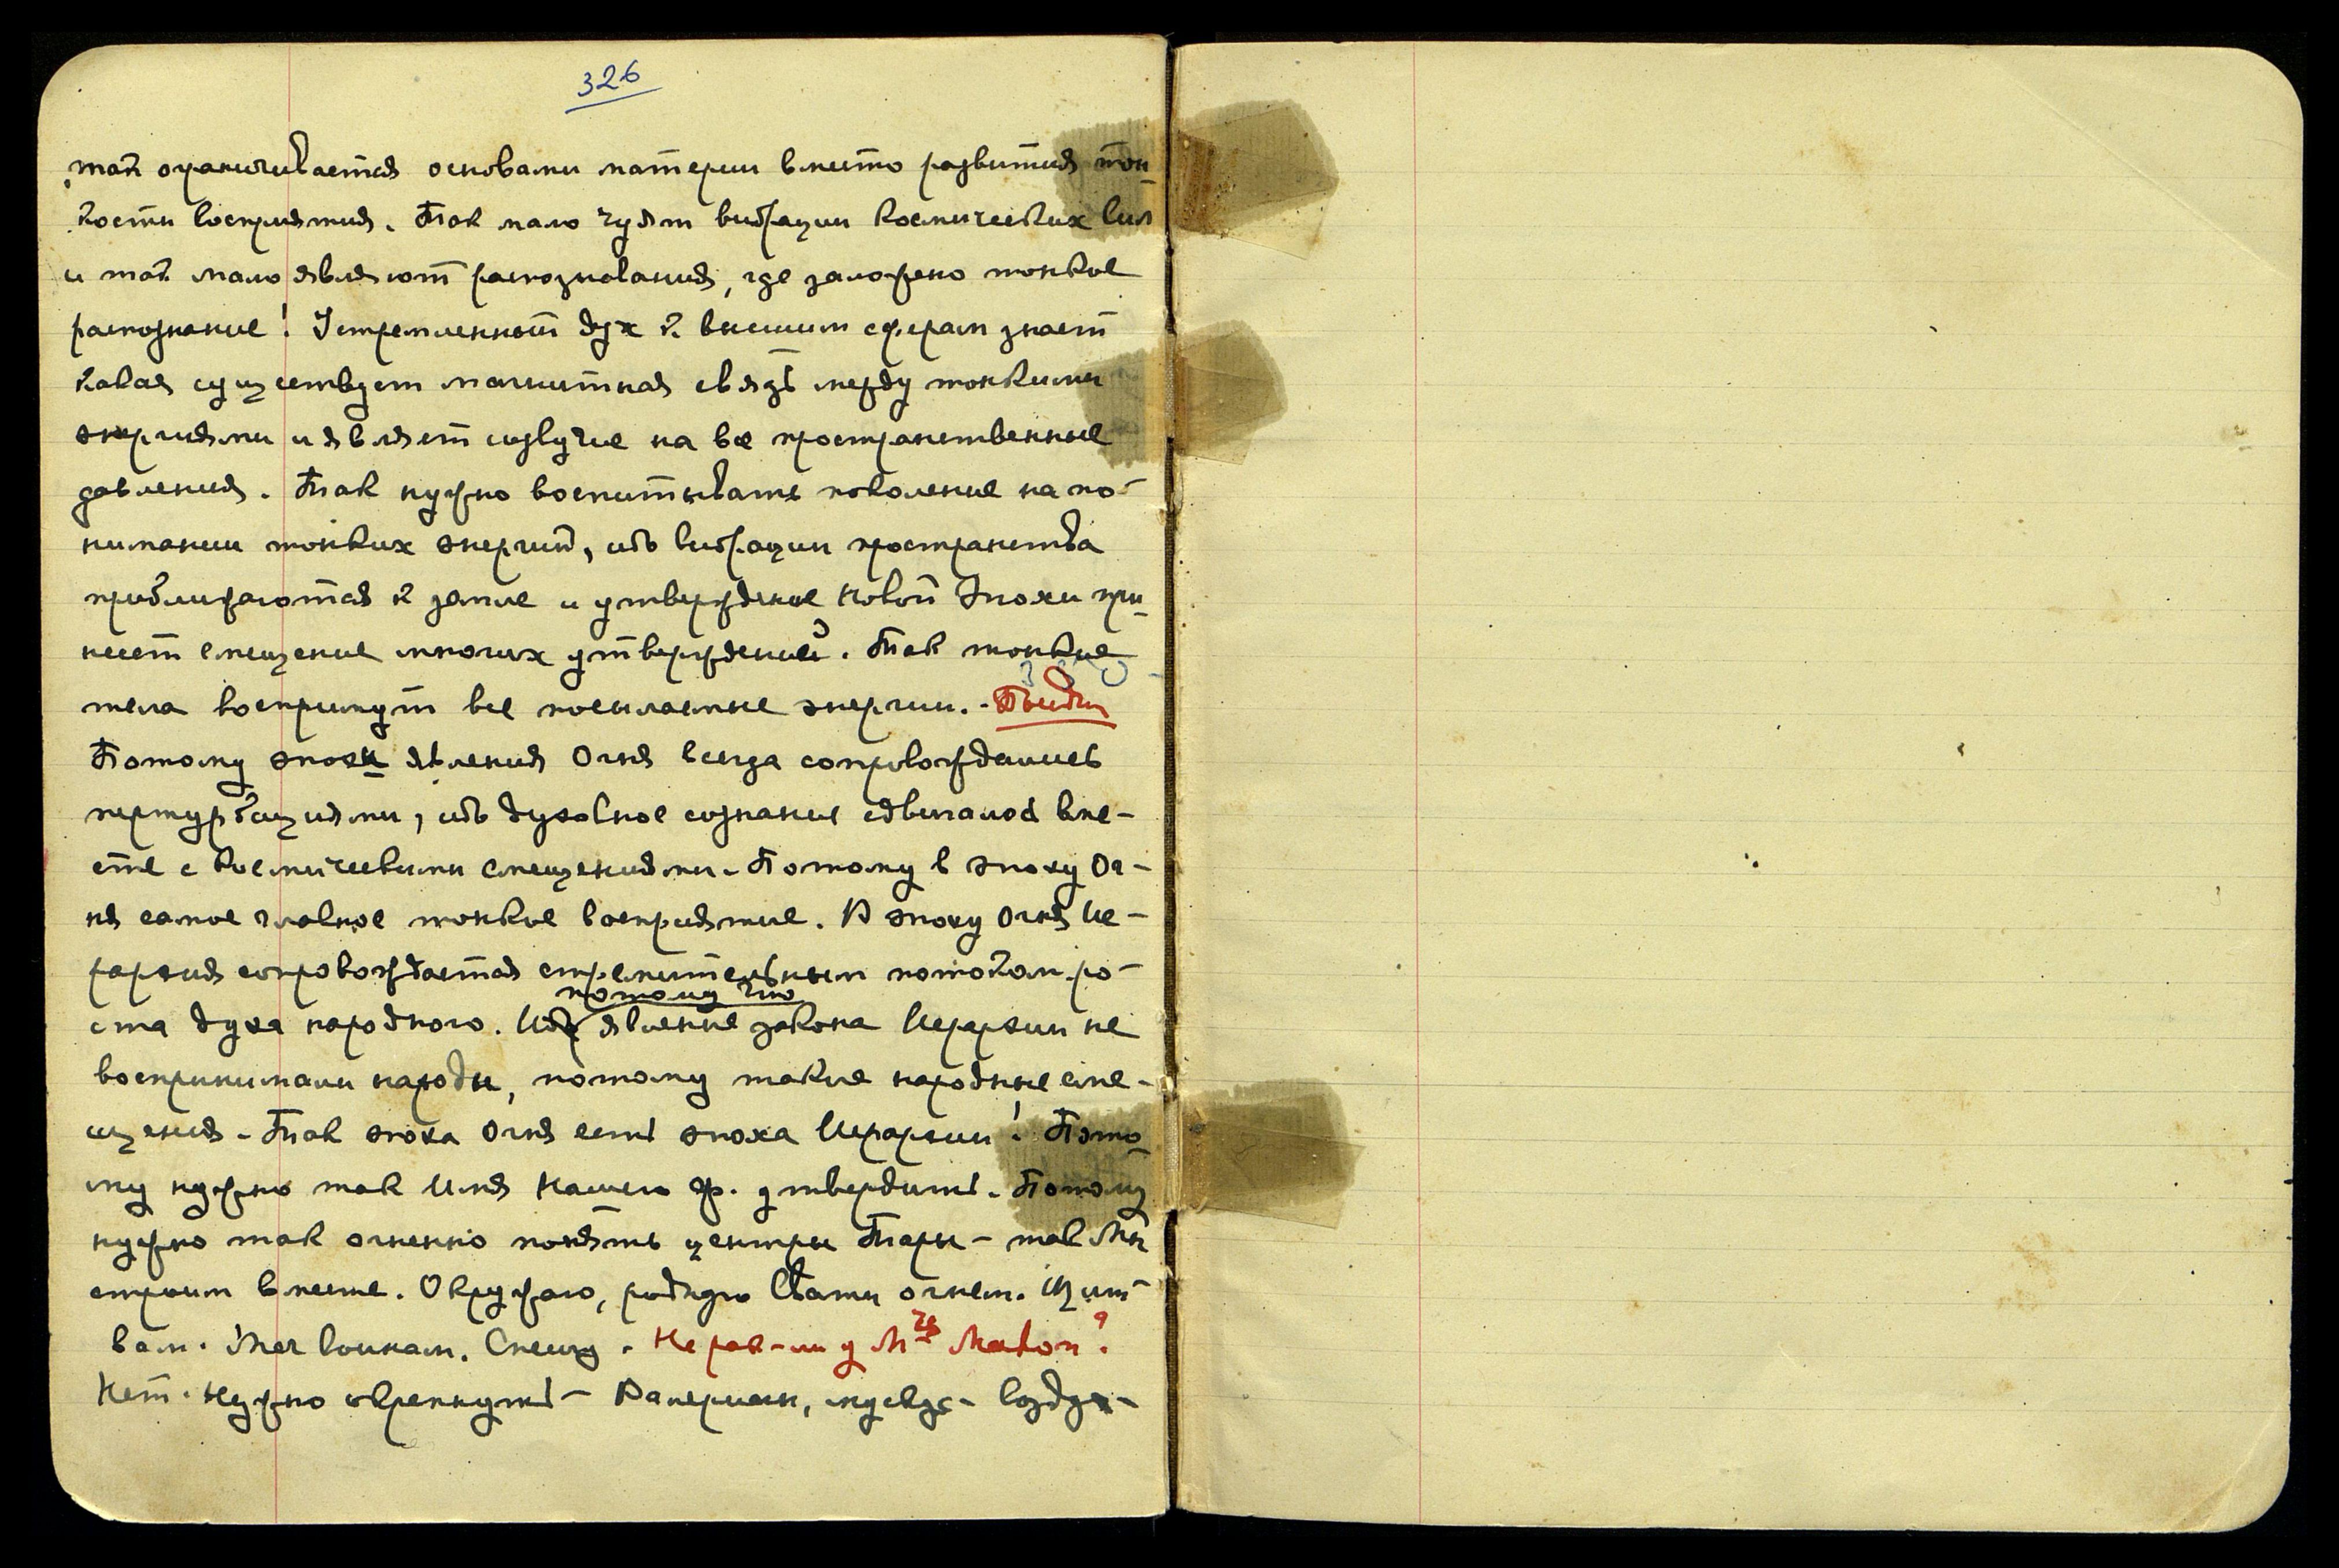 326
так ограничивается основами материи вместо развития тон-
кости восприятия. Так мало чуят вибрации космических сил
и так мало являют распознавания, где заложено тонкое
распознание! Устремленный дух к высшим сферам знает
какая существует магнитная связь между тонкими
энергиями и являет созвучие на все пространственные
давления. Так нужно воспитывать поколение на по-
нимании тонких энергий, ибо вибрации пространства
приближаются к земле и утверждение Новой Эпохи при-
несет смещение многих утверждений. Так тонкие
тела воспримут все посылаемые энергии. -
Потому эпохи явления Огня всегда сопровождались
пертурбациями, ибо духовное сознание сдвигалось вме-
сте с космическими смещениями. Потому в эпоху Ог-
ня самое главное тонкое восприятие. В эпоху Огня Ие-
рархия сопровождается стремительным потоком ро-
потому что
ста духа народного. Ибо явление закона Иерархии не
воспринимали народы, потому такие народные сме-
щения. Так эпоха Огня есть эпоха Иерархии! Пото-
му нужно так Имя Нашего Ф. утвердить. Потому
нужно так огненно понять центры Тары - так Мы
строим вместе. Окружаю, радуюсь Вами огнем. Щит
вам. Меч воинам. Спешу. Не рак-ли у М
Нет. Нужно окрепнуть - Валериан, мускус - воздух-